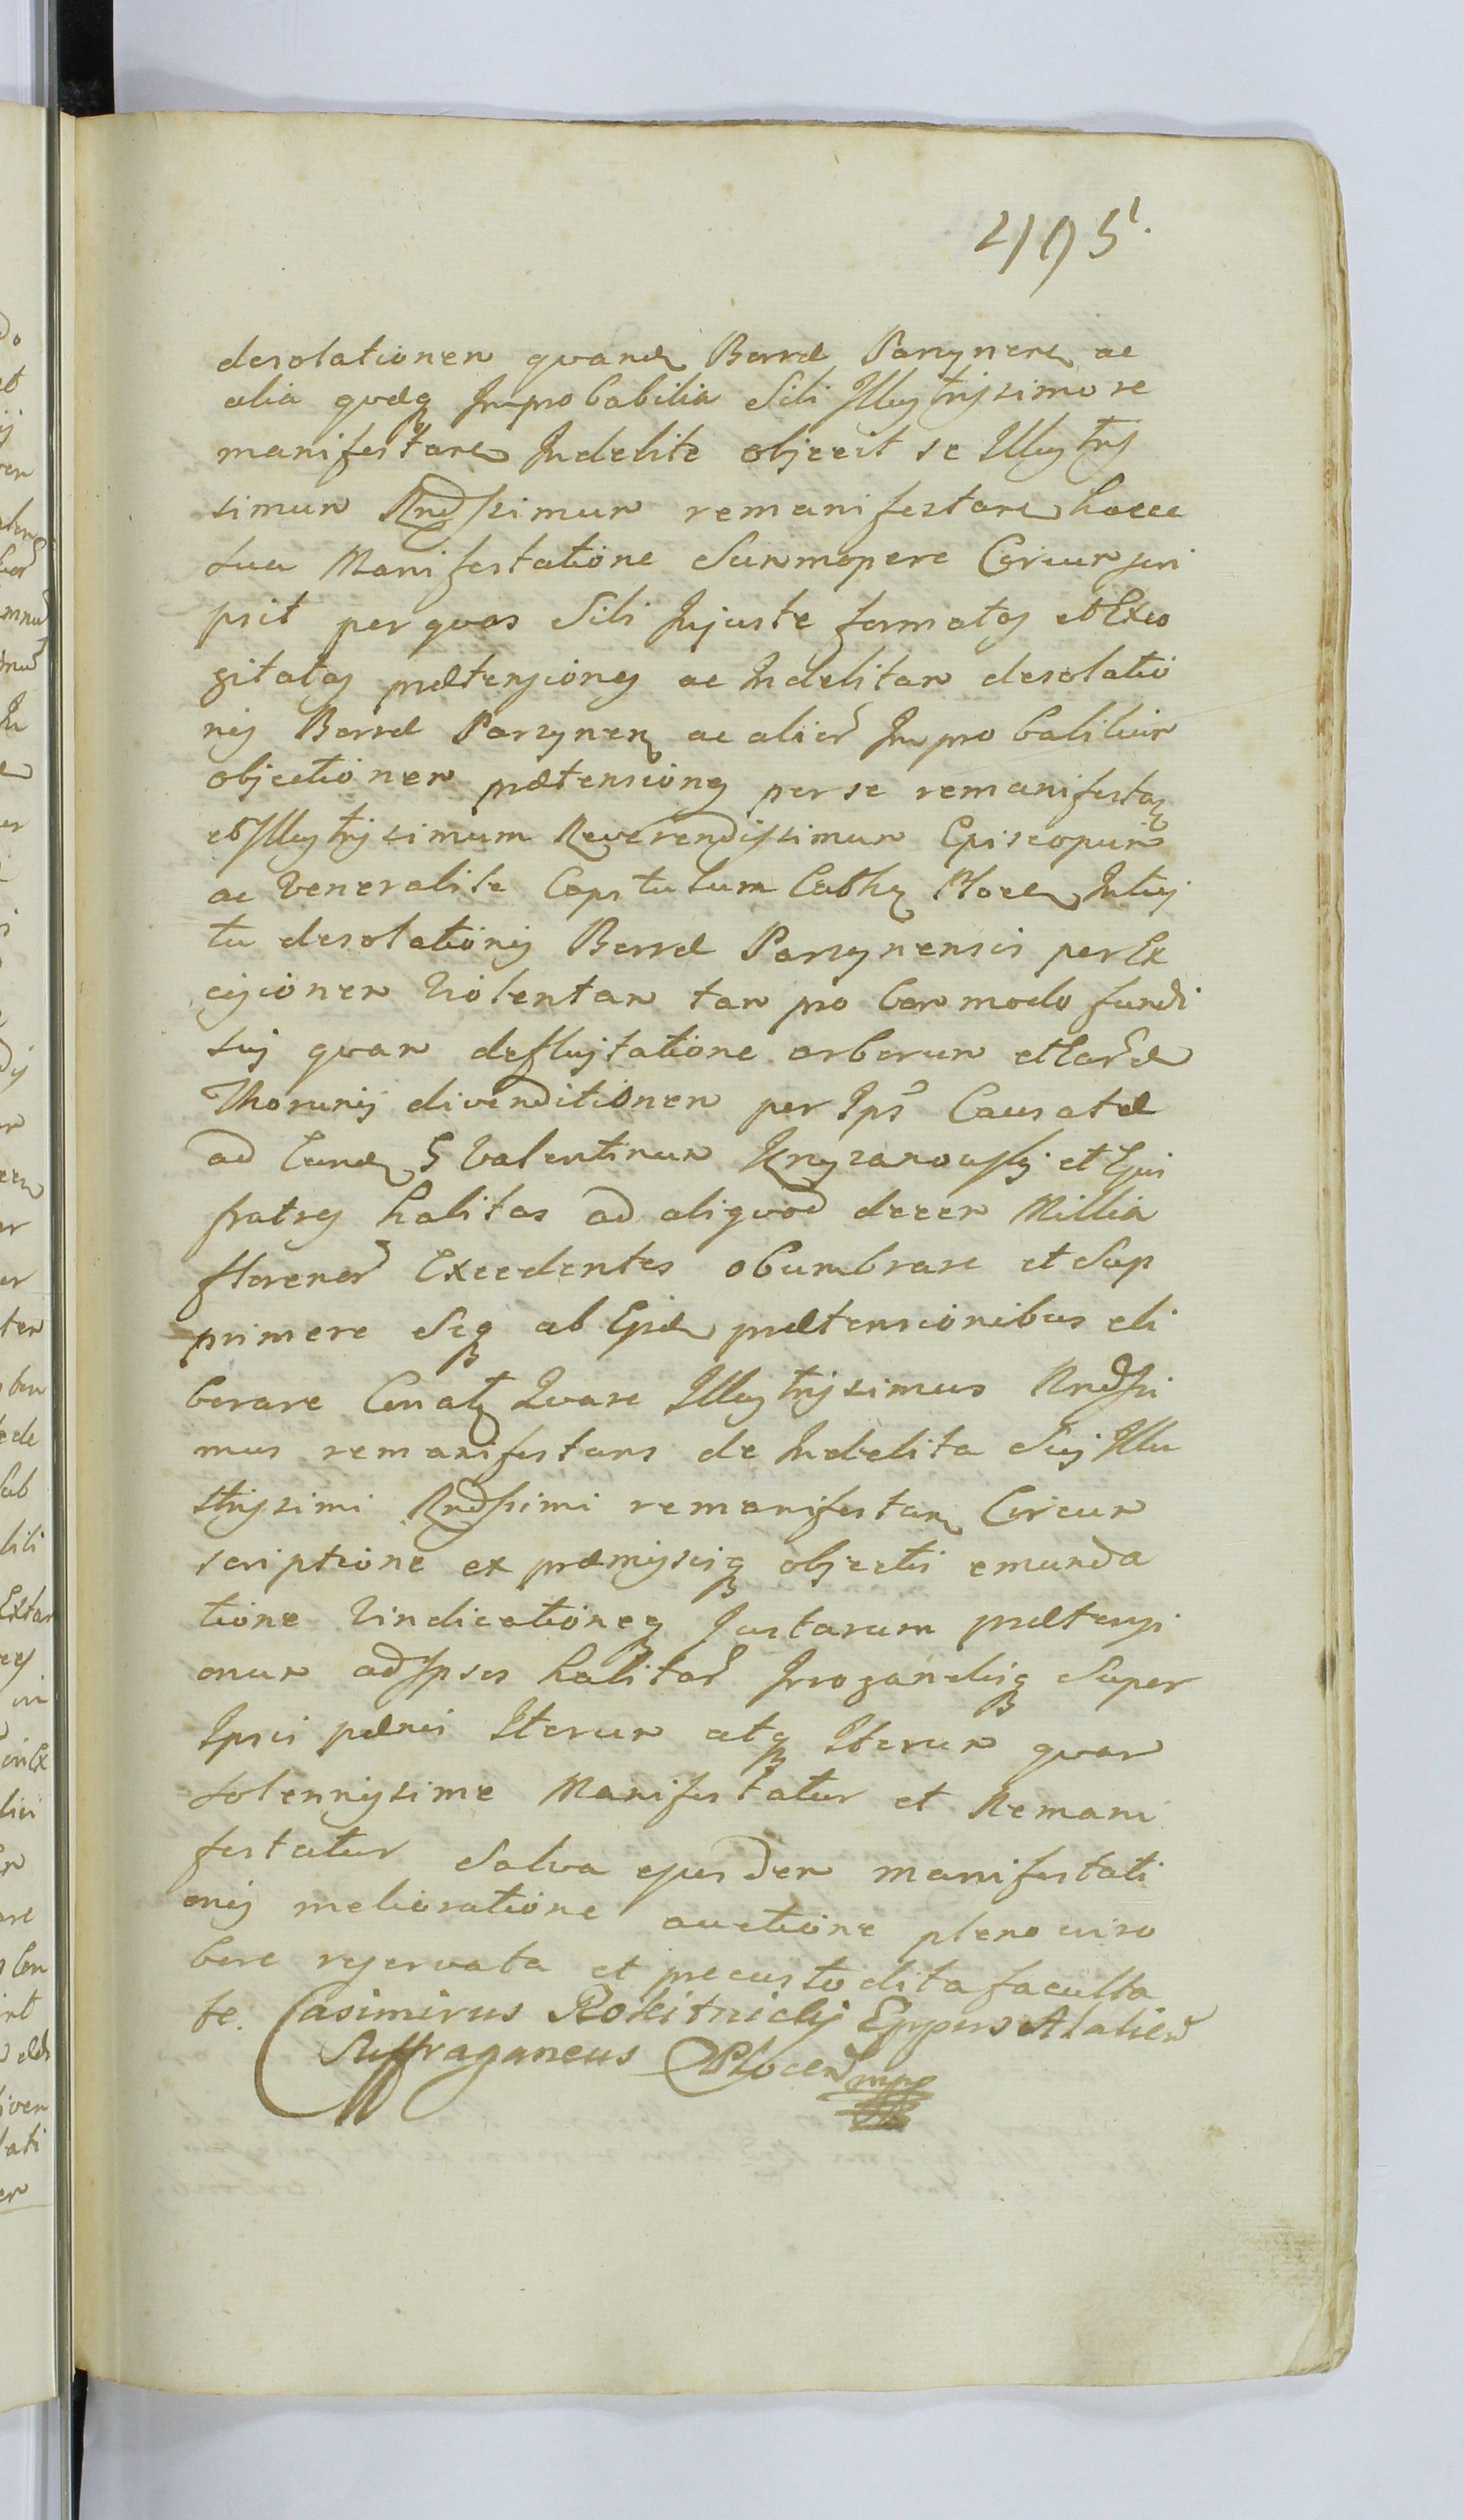 495.
desolationem quand Borræ Parzynen ac
alia quæq Improbabilia Sibi Illustrissimo re
manifestare Indebite objecit se Illustris
simum Rndssimum remanifestare hocce
sua Manifestatione Summopere Circumscri
psit per quos Sibi Injuste formatas et Exco
gitatas prætensiones ac Indebitam desolatio
nis Borræ Parzynen ac alior Improbabilium
objectionem prætensiones per se remanifestan
et Illustrissimum Reverendissimum Episcopum
ac Venerabile Capitulum Cathy Plocen Intui
tu desolationis Borræ Parzynensis per Ex
cisionem Violentam tam pro bon modo fundi
sui quam defluitatione arborum et
Thorunij divenditionem per Ips Causatæ
ad Eund G Valentinum Krzyzanowski et Ejus
fratres habitas ad aliquod decem Millia
florenor Excedentes obumbrare et Sup
primere Seq ab Ejsd prætensionibus eli
berare Conat Quare Illustrissimus Rndssi
mus remanifestans de Indebita Sui Illu
strissimi Rndssimi remanifestan Circum
scriptione ex præmissisq objectis emunda
tione Vindicationeq Justarum prætensi
onum ad Ipsos habitar Irrogandisq Super
Ipsis pænis Iterum atq Iterum quam
solennissime Manifestatur et Remani
festatur Salva ejusdem manifestati
onis melioratione auctione pleno viro
bore reservata et præcustodita faculta
te. Casimirus Rokitnicki Eppus Atalien
Suffraganeus Plocen mpp